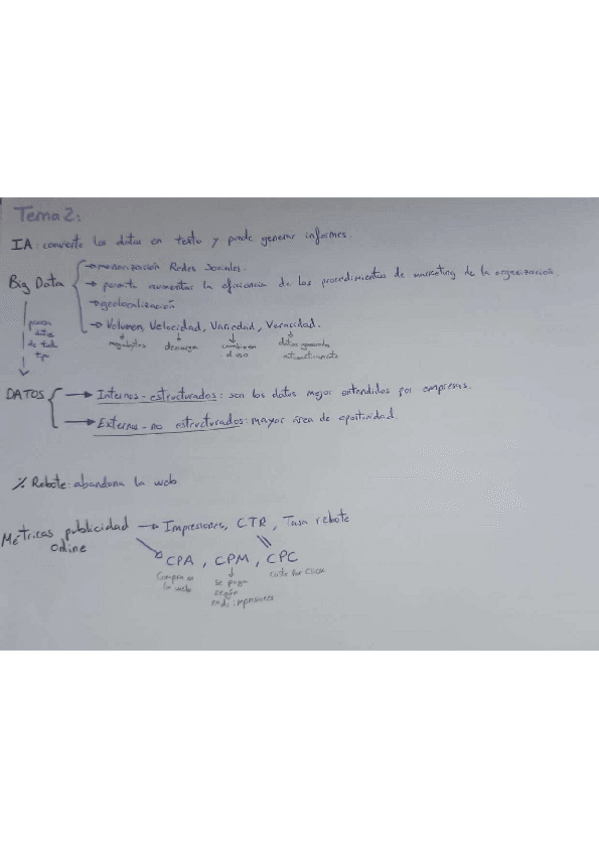 Tema 2:
IA: convierte los datos en texto y puede generar informes.
Big Data
→ monorización Redes Sociales.
→ permite aumentar la eficiencia de los procedimientos de marketing de la organización.
→ geolocalización
→ Volumen, Velocidad, Variedad, Veracidad.
megabytes descarga cambian en el uso datos generados automáticamente
de todo
tipo
DATOS
→ Internos - estructurados: son los datos mejor entendidos por empresas.
→ Externos - no estructurados: mayor área de oportunidad.
% Rebote: abandona la web
Métricas publicidad online → Impresiones, CTR, Tasa rebote
CPA, CPM, CPC
Compra en la web
se paga según
impresiones
coste por click